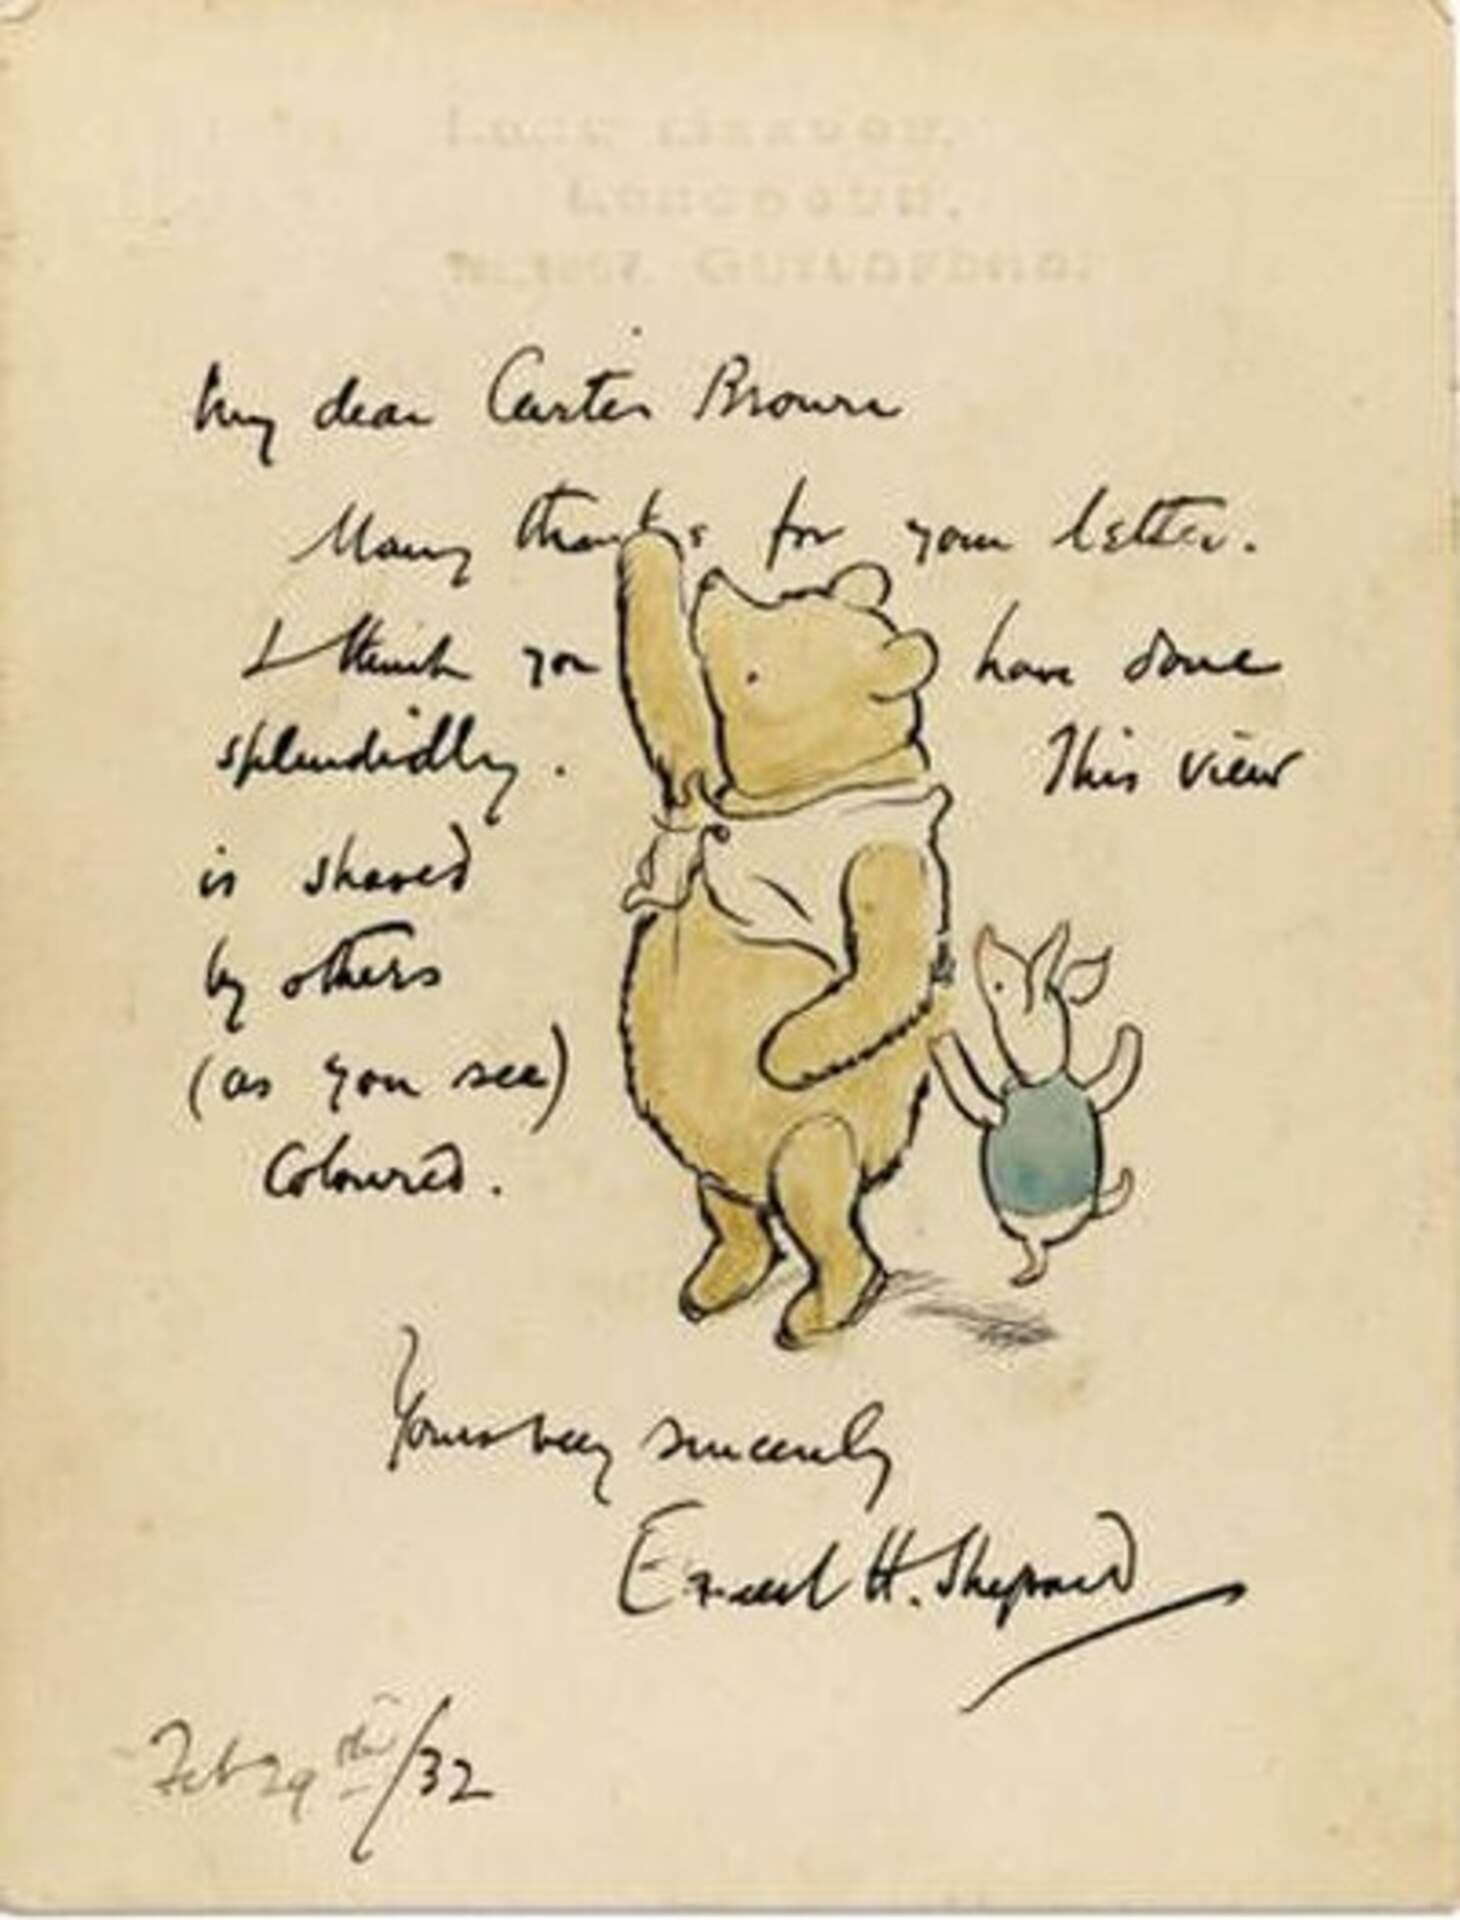 LONG MEADOW,
LONGDOWN,
GUILDFORD.
My dear Carter Brown
Many thanks for your letter.
I think you have done
splendidly. This view
is shared
by others
(as you see)
Coloured.
Yours very sincerely
Ernest H. Shepard
Feb 29th/32